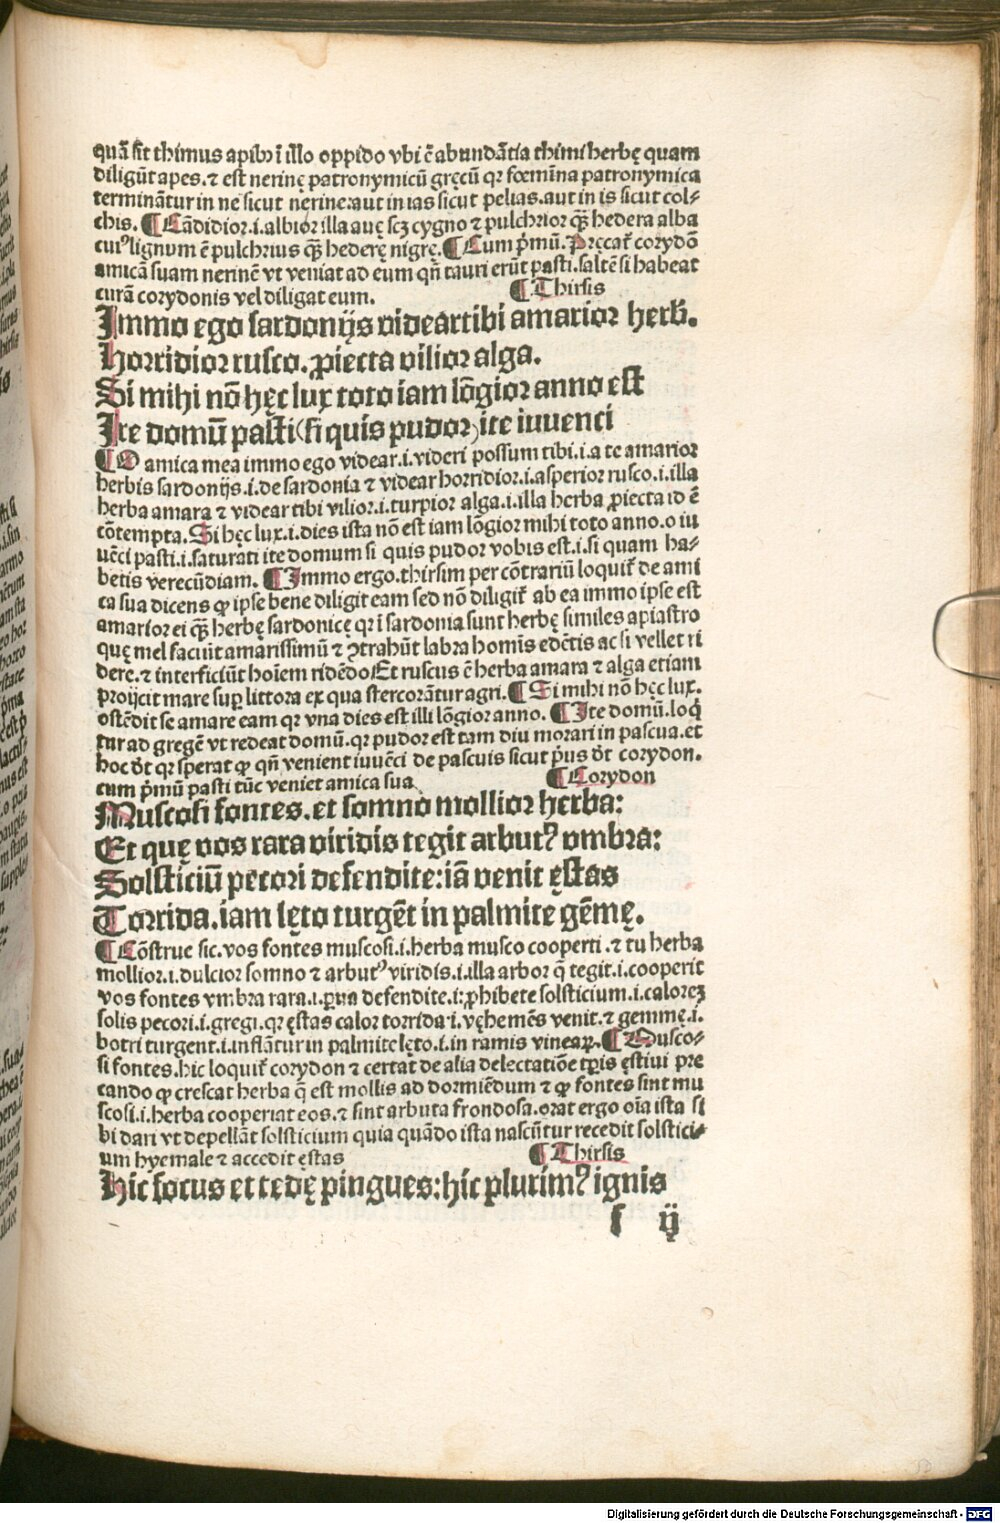 quā sit thimus apibꝰ ī illo oppido vbi ē abundātia thimi herbę quam
diligūt apes. ⁊ est nerinę patronymicū gręcū qꝛ fœmīna patronymica
terminātur in ne sicut nerine aut in ias sicut pelias. aut in is sicut col⸗
chis. ¶ Cādidior .i. albior illa auę scꝫ cygno ⁊ pulchrior qȝ hedera alba
cuiꝰ lignum ē pulchrius qȝ hederę nigrę. ¶ Cum p̄mū. Pręcat̄ corydō
amicā suam nerinē vt veniat ad eum qn̄ tauri erūt pasti. saltē si habeat
curā corydonis vel diligat eum. ¶ Thirsis
Immo ego sardonijs videar tibi amarior herb̄.
Horridior rusco. ꝓiecta vilior alga.
Si mihi nō hęc lux toto iam lōgior anno est
Ite domū pasti (si quis pudor) ite iuuenci
¶ O amica mea immo ego videar .i. videri possum tibi .i. a te amarior
herbis sardonijs .i. de sardonia ⁊ videar horridior .i. asperior rusco .i. illa
herba amara ⁊ videar tibi vilior .i. turpior alga .i. illa herba ꝓiecta id ē
cōtempta. Si hęc lux .i. dies ista nō est iam lōgior mihi toto anno. o iu
uēci pasti .i. saturati ite domum si quis pudor vobis est .i. si quam ha⸗
betis verecūdiam. ¶ Immo ergo. thirsim per cōtrariū loquit̄ de ami
ca sua dicens ꝙ ipse bene diligit eam sed nō diligit̄ ab ea immo ipse est
amarior ei qȝ herbę sardonicę qꝛ ī sardonia sunt herbę similes apiastro
quę mel faciūt amarissimū ⁊ ꝯtrahūt labra homīs edētis ac si vellet ri
dere. ⁊ interficiūt hoīem ridēdo Et ruscus ē herba amara ⁊ alga etiam
proijcit mare suꝑ littora ex qua stercorātur agri. ¶ Si mihi nō hęc lux.
ostēdit se amare eam qꝛ vna dies est illi lōgior anno. ¶ Ite domū. loq̄
tur ad gregē vt redeat domū. qꝛ pudor est tam diu morari in pascua. et
hoc dt̄ qꝛ sperat ꝙ qn̄ venient iuuēci de pascuis sicut p̄us dt̄ corydon.
cum p̄mū pasti tūc veniet amica sua. ¶ Corydon
Muscosi fontes. et somno mollior herba:
Et quę vos rara viridis tegit arbutꝰ vmbra:
Solsticiū pecori defendite: iā venit ęstas
Torrida. iam lęto turgēt in palmite gēmę.
¶ Cōstrue sic. vos fontes muscosi .i. herba musco cooperti. ⁊ tu herba
mollior .i. dulcior somno ⁊ arbutꝰ viridis .i. illa arbor q̄ tegit .i. cooperit
vos fontes vmbra rara .i. ꝑua defendite .i. ꝓhibete solsticium .i. calorez
solis pecori .i. gregi. qꝛ ęstas calor torrida .i. vęhemēs venit. ⁊ gemmę .i.
botri turgent .i. inflātur in palmite lęto .i. in ramis vineaꝝ. ¶ Musco⸗
si fontes. hic loquit̄ corydon ⁊ certat̄ de alia delectatiōe tꝑis ęstiui pre
cando ꝙ crescat herba q̄ est mollis ad dormiēdum ⁊ ꝙ fontes sint mu
scosi .i. herba cooperiat eos. ⁊ sint arbuta frondosa. orat ergo oīa ista si
bi dari vt depellāt solsticium quia quādo ista nascūtur recedit solstici⸗
um hyemale ⁊ accedit ęstas ¶ Thirsis
Hic focus et tedę pingues: hic plurimꝰ ignis
f ij
Digitalisierung gefördert durch die Deutsche Forschungsgemeinschaft - DFG